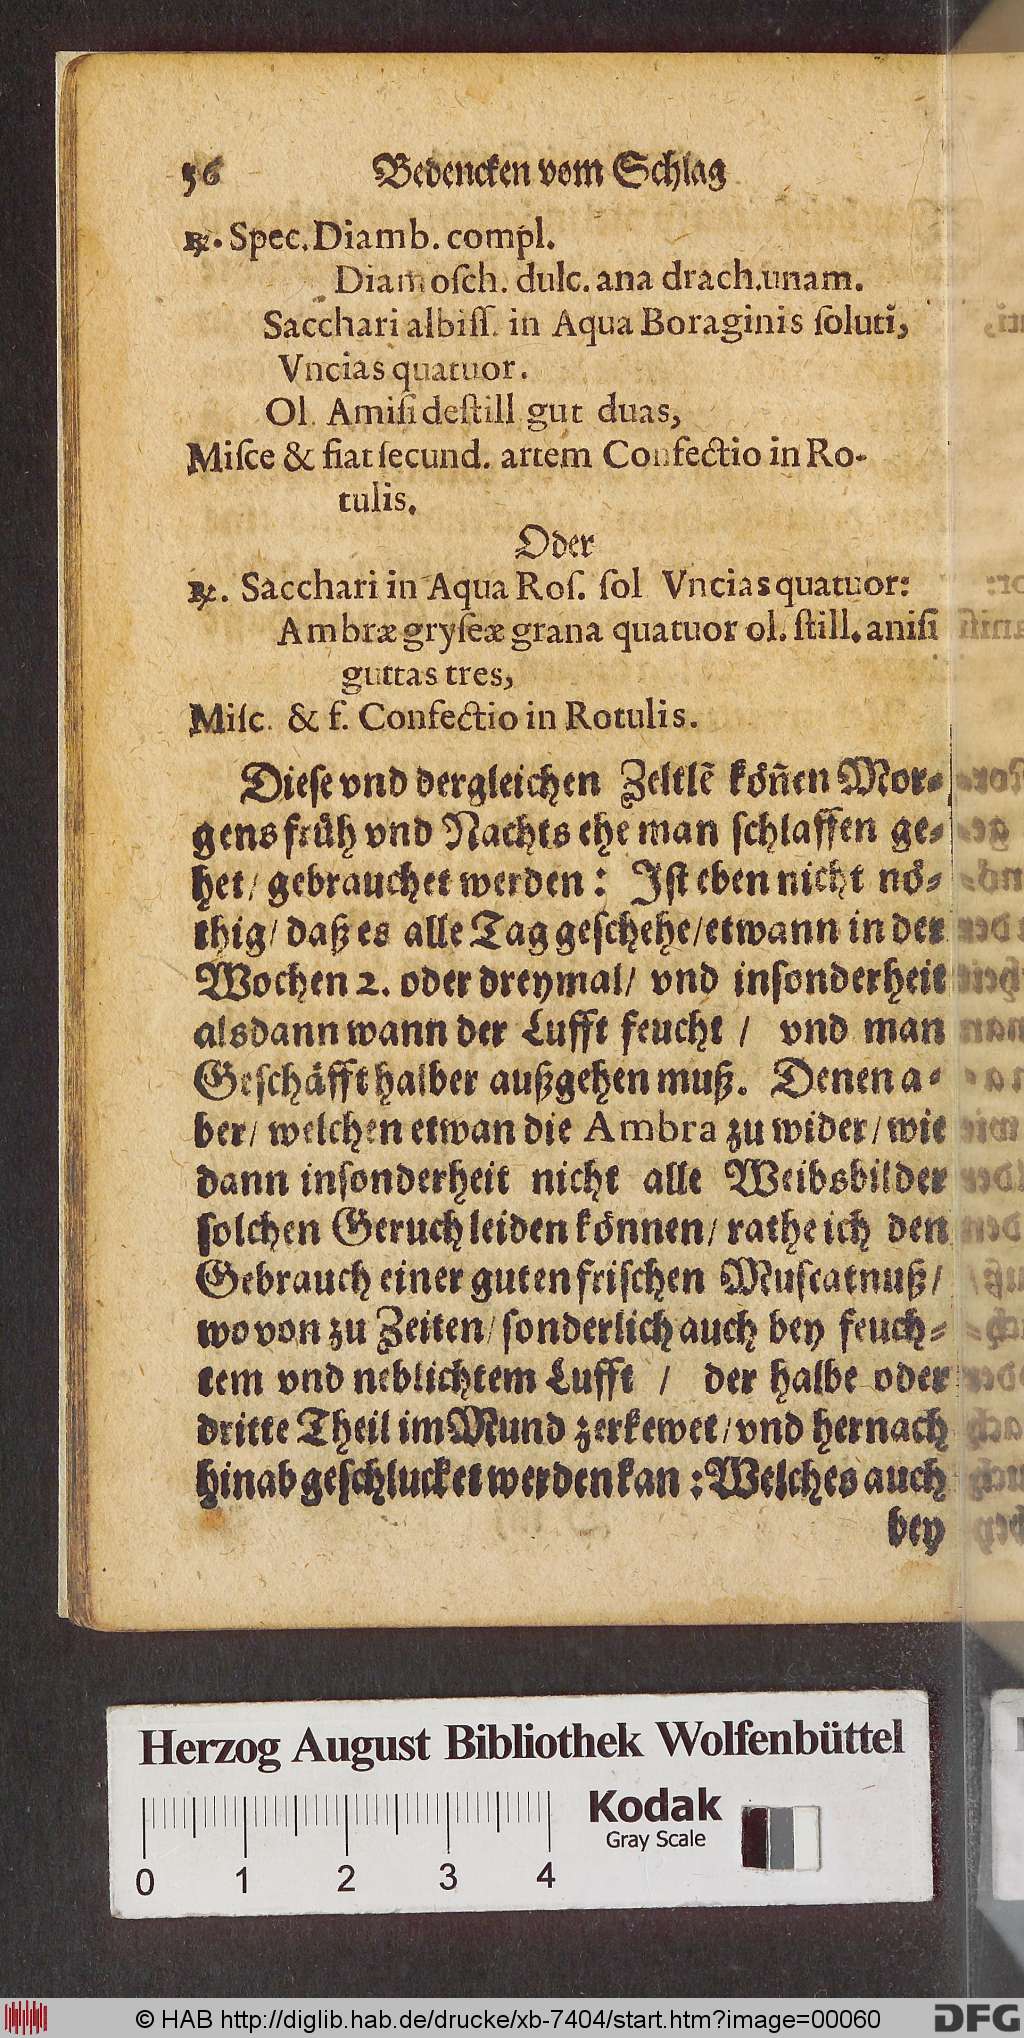 56 Bedencken vom Schlag
℞. Spec. Diamb. compl.
Diamoſch. dulc. ana drach. unam.
Sacchari albiſſ. in Aqua Boraginis ſoluti,
Vncias quatuor.
Ol. Amiſi deſtill gut duas,
Miſce & fiat ſecund. artem Confectio in Ro-
tulis.
Oder
℞. Sacchari in Aqua Roſ. ſol Vncias quatuor:
Ambræ gryſeæ grana quatuor ol. ſtill. aniſi
guttas tres,
Miſc. & f. Confectio in Rotulis.
Dieſe vnd dergleichen Zeltlē köñen Mor-
gens früh vnd Nachts ehe man ſchlaffen ge-
het/ gebrauchet werden: Iſt eben nicht nö-
thig/ daß es alle Tag geſchehe/ etwann in der
Wochen 2. oder dreymal/ vnd inſonderheit
alsdann wann der Lufft feucht / vnd man
Geſchäfft halber außgehen muß. Denen a-
ber/ welchen etwan die Ambra zu wider/ wie
dann inſonderheit nicht alle Weibsbilder
ſolchen Geruch leiden können/ rathe ich den
Gebrauch einer guten friſchen Muſcatnuß/
wovon zu Zeiten/ ſonderlich auch bey feuch-
tem vnd neblichtem Lufft / der halbe oder
dritte Theil im Mund zerkewet/ vnd hernach
hinab geſchlucket werden kan: Welches auch
bey
Herzog August Bibliothek Wolfenbüttel
Kodak
Gray Scale
0 1 2 3 4
© HAB http://diglib.hab.de/drucke/xb-7404/start.htm?image=00060
DFG